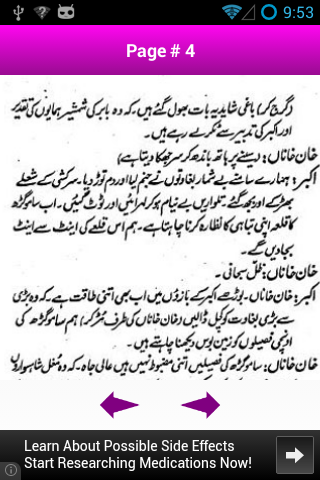 9:53
Page # 4
(گرج کر) باغی شاید یہ بات بھول گئے ہیں۔ کہ وہ بابر کی شمشیر ہمایوں کی تقدیر
اور اکبر کی تدبیر سے ٹکرا رہے ہیں۔
خان خاناں: (سینے پر ہاتھ باندھ کر سر جھکا دیتا ہے)
اکبر: ہمارے سامنے بے شمار بغاوتوں نے جنم لیا اور دم توڑ دیا۔ سرکشی کے شعلے
بھڑکے اور بجھ گئے۔ تلواریں بے نیام ہو کر لہرائیں اور ٹوٹ گئیں۔ اب ساموگڑھ
کا قلعہ اپنی تباہی کا نظارہ کرنا چاہتا ہے۔ ہم اس قلعے کی اینٹ سے اینٹ
بجا دیں گے۔
خان خاناں: ظل سبحانی۔
اکبر: خان خاناں۔ بوڑھے اکبر کے بازوؤں میں اب بھی اتنی طاقت ہے۔ کہ وہ بڑی
سے بڑی بغاوت کو کچل ڈالیں (خان خاناں کی طرف مڑ کر) ہم ساموگڑھ کی
اونچی فصیلوں کو زمین بوس دیکھنا چاہتے ہیں۔
خان خاناں: ساموگڑھ کی فصیلیں اتنی مضبوط نہیں ہیں عالی جاہ۔ کہ وہ مغل شاہسواروں
Learn About Possible Side Effects
Start Researching Medications Now!